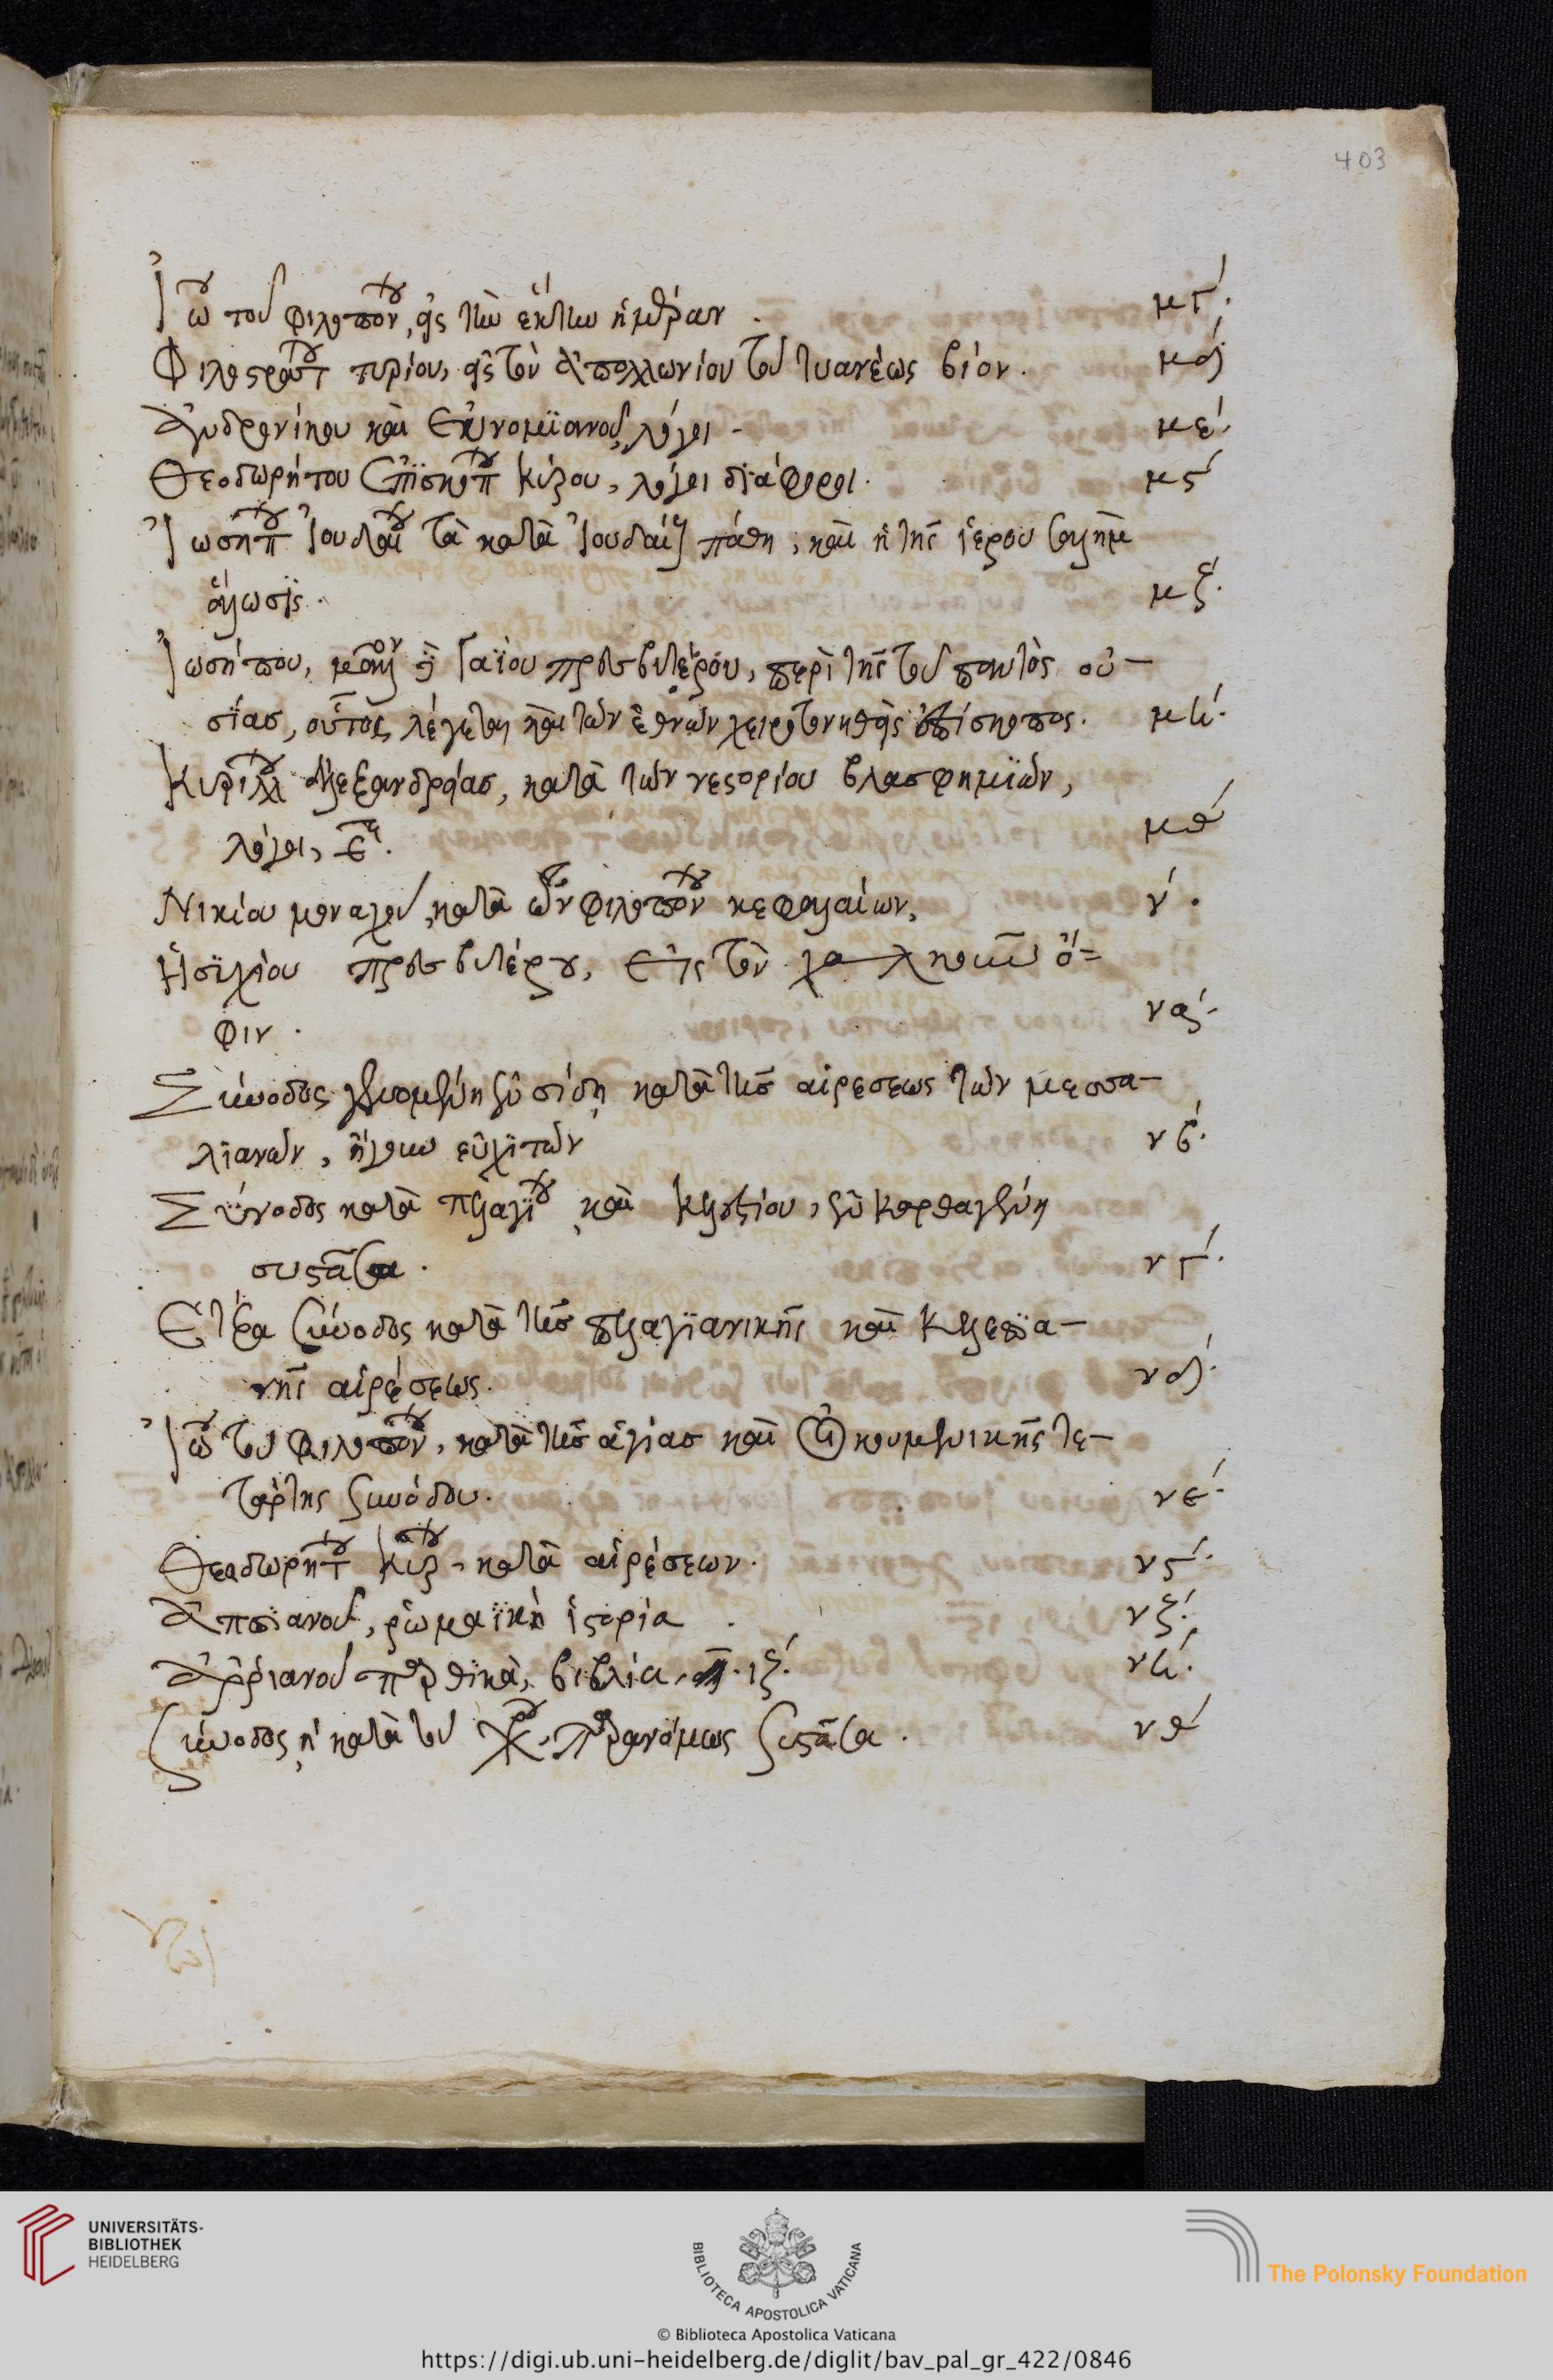 403
Ἰω τοῦ φιλοπον, εἰς τὴν ἕκτην ἡμέραν. μγ΄.
Φιλοστρατ τυρίου, εἰς τὸν Ἀπολλωνίου τοῦ τυανέως βίον. μδ΄
Ἀνδρονίκου καὶ Εὐνομϊανοῦ, λόγοι. με΄.
Θεοδωρήτου ἐπϊσκοπ κύρου, λόγοι διάφοροι. μϛ΄
Ἰωσηπ Ἰουδαι τὰ κατὰ Ἰουδαίους πάθη, καὶ ἡ τῆς ἱερουσαλὴμ
ἅλωσϊς. μζ΄.
Ἰωσήπου, μᾶλλον ἢ Γαΐου πρεσβυτέρου, περὶ τῆς τοῦ παντὸς οὐ-
σίας, οὗτος λέγεται καὶ τῶν ἐθνῶν χειροτονηθεὶς ἐπίσκοπος. μη΄.
Κυριλλ Ἀλεξανδρείας, κατὰ τῶν νεστορίου βλασφημϊῶν,
λόγοι, ε. μθ΄
Νικίου μοναχοῦ, κατὰ τῶν φιλοπον κεφαλαίων, ν΄.
Ἡσϋχίου πρεσβυτέρου, εἰς τὸν χαλκοῦν ὄ-
φιν. να΄.
Σύνοδος γενομένη ἐν σίδῃ κατὰ τῆς αἱρέσεως τῶν μεσσα-
λϊανῶν, ἤγουν εὐχϊτῶν νβ΄.
Σύνοδος κατὰ πελαγϊ καὶ κελεστίου, ἐν καρθαγένῃ
συστᾶσα. νγ΄.
Ἑτέρα σύνοδος κατὰ τῆς πελαγϊανικῆς καὶ κελεστϊα-
νῆς αἱρέσεως. νδ΄.
Ἰω τοῦ φιλοπον, κατὰ τῆς ἁγίας καὶ οἰκουμενικῆς τε-
τάρτης συνόδου. νε΄.
Θεοδωρητ κυρ, κατὰ αἱρέσεων. νϛ΄.
Ἀππϊανοῦ, ῥωμαϊκὴ ἱστορία. νζ΄.
Ἀρῥιανοῦ παρθϊκὰ, βιβλία, ιζ΄. νη΄.
Σύνοδος ἡ κατὰ τοῦ Χρ, παρανόμως συστᾶσα. νθ΄
UNIVERSITÄTS-
BIBLIOTHEK
HEIDELBERG
BIBLIOTECA APOSTOLICA VATICANA
The Polonsky Foundation
© Biblioteca Apostolica Vaticana
https://digi.ub.uni-heidelberg.de/diglit/bav_pal_gr_422/0846